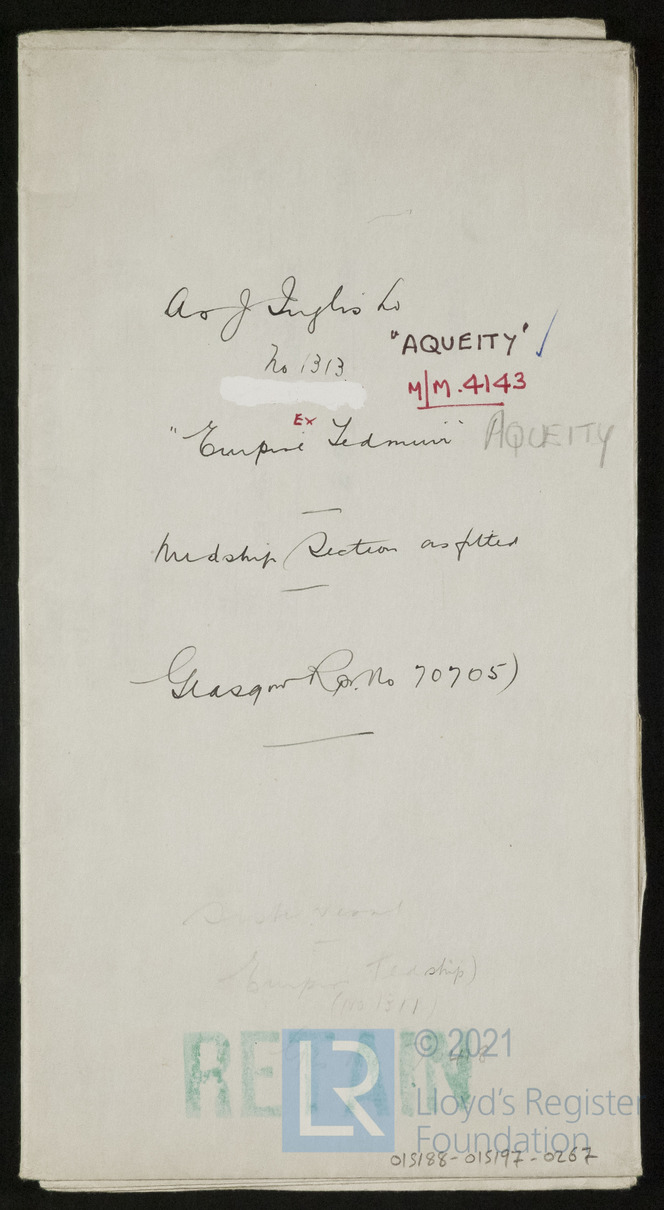 A & J Inglis Ld
No 1313
"AQUEITY" ✓
M/M.4143
Ex
"Empire Tedmuir" AQUEITY
Midship Section as fitted
Glasgow Rpt. No 70705)
Empire Tedship)
(No 1311)
RETAIN
© 2021
Lloyd's Register
Foundation
LR
015188-015197-0267